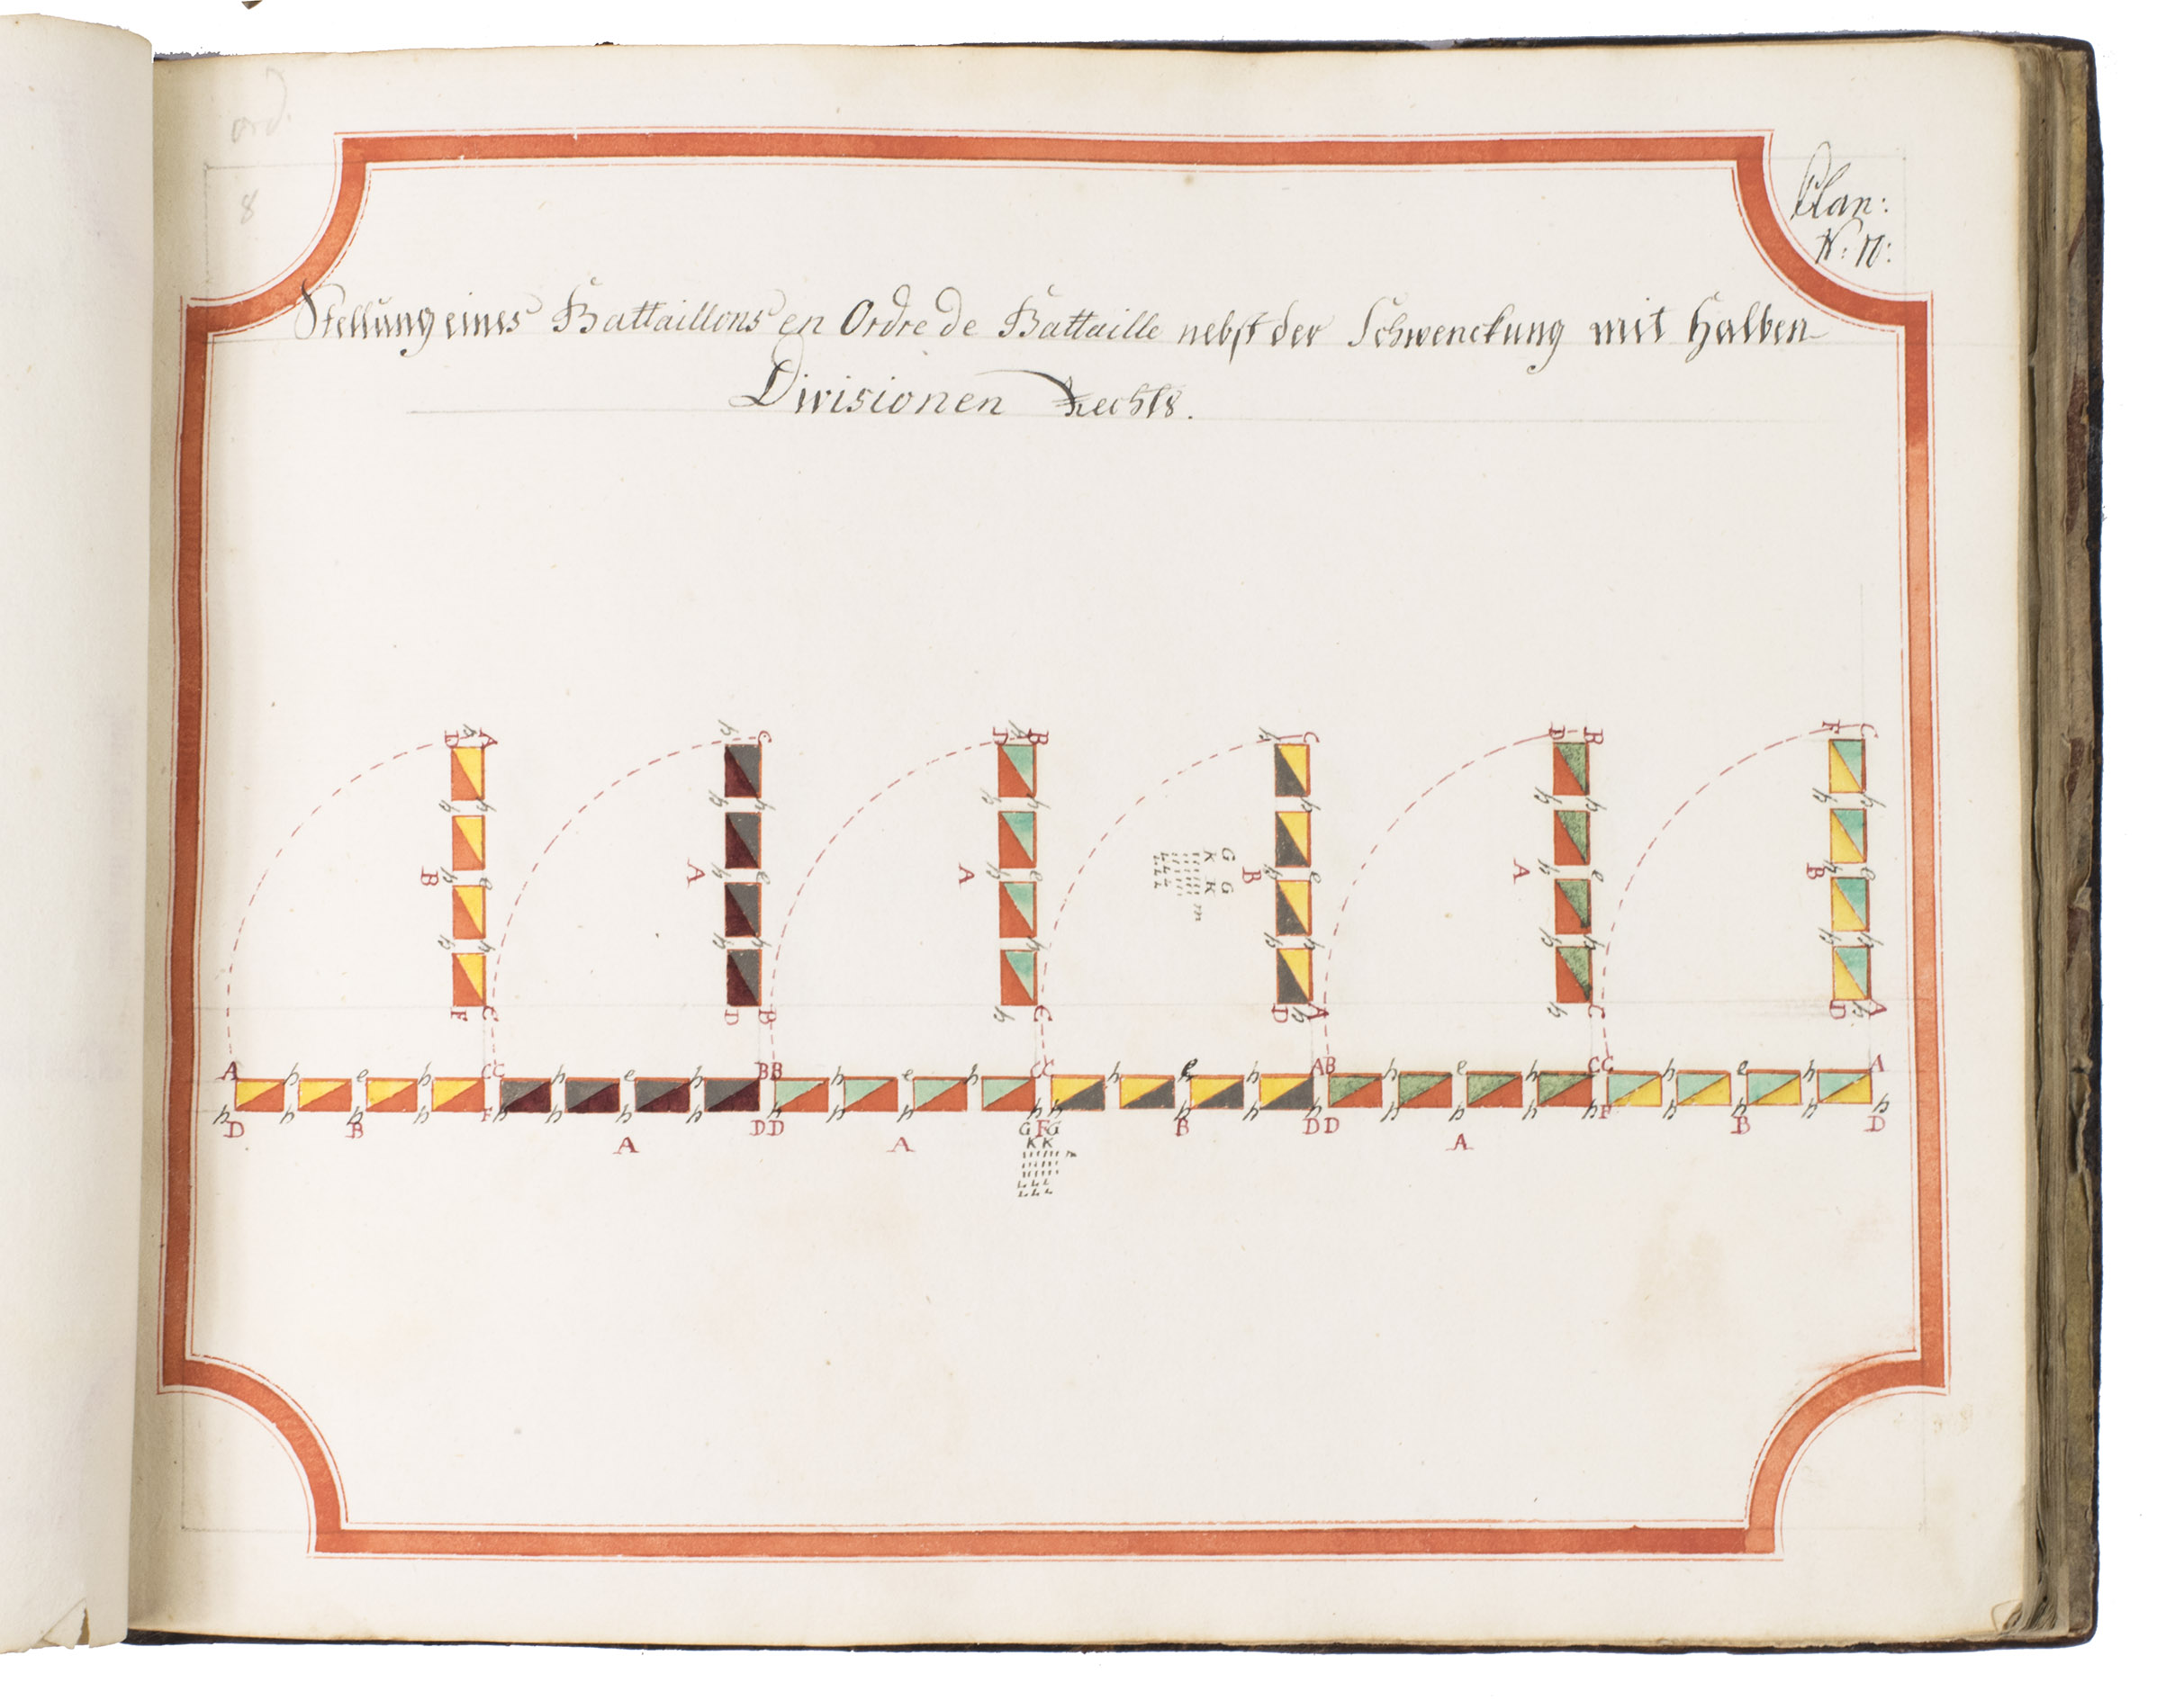 ord.
8
Plan:
N: 10:
Stellung eines Battaillons en Ordre de Battaille nebst der Schwenckung mit Halben
Divisionen Rechts.
D h A h C h D h B h C D B F C
h h h h h h h h h h h h
B h e A h e A h e G K G K m B h e A h e B h e
h h h h h h h h h h h h
F C D B h C D h A h C D h A
A h e h C C h e h B B h e h C C h e h A B h e h C C h e h A
h h h h F h h h h h h h h h h h h h h h h F h h h
D B A D D A F B D D A B D
G G
K K
L L L
L L L